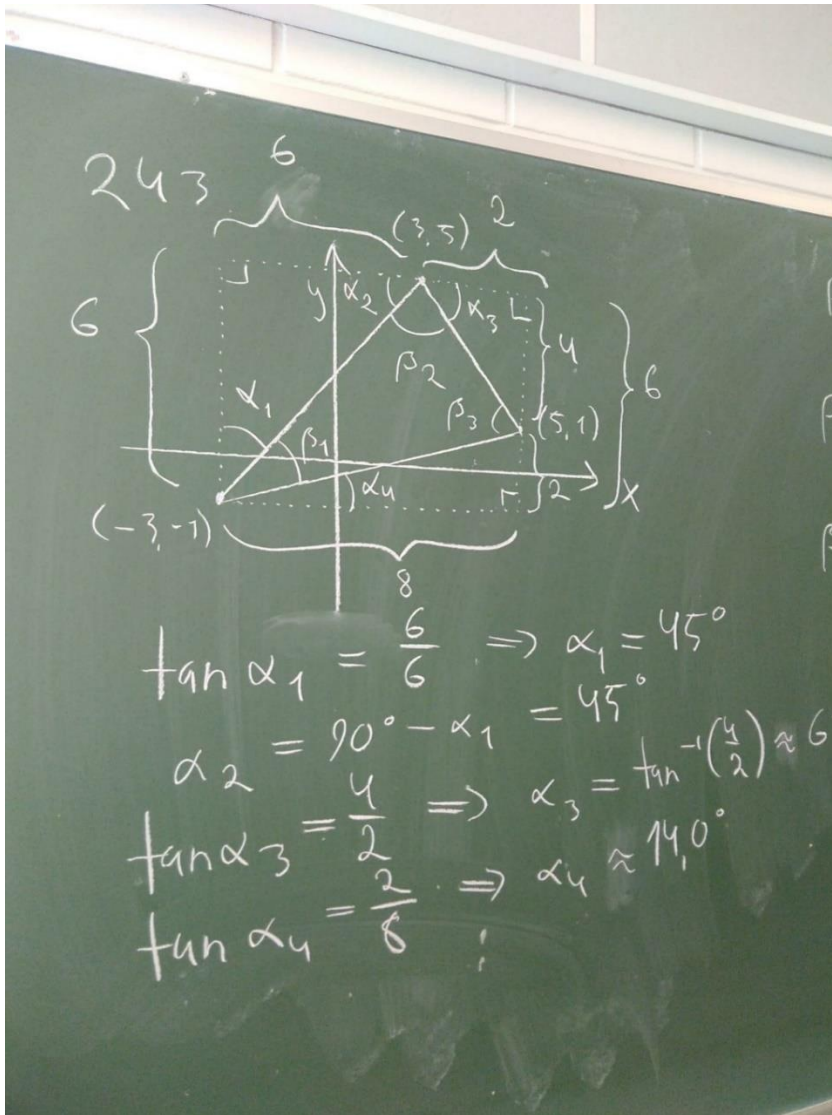 243
6
2
(3,5)
6
y
α₂
α₃
4
6
β₂
α₁
β₃
(5,1)
β₁
α₄
2
x
(-3,-1)
8
tan α₁ = 6/6 ⇒ α₁ = 45°
α₂ = 90° - α₁ = 45°
tan α₃ = 4/2 ⇒ α₃ = tan⁻¹(4/2) ≈ 6
tan α₄ = 2/8 ⇒ α₄ ≈ 14,0°
⋮